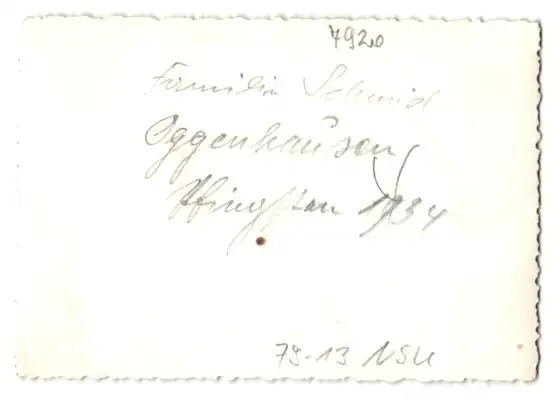 7920
Familie Schmid
Oggenhausen
Pfingsten 1934
79-13 NSU